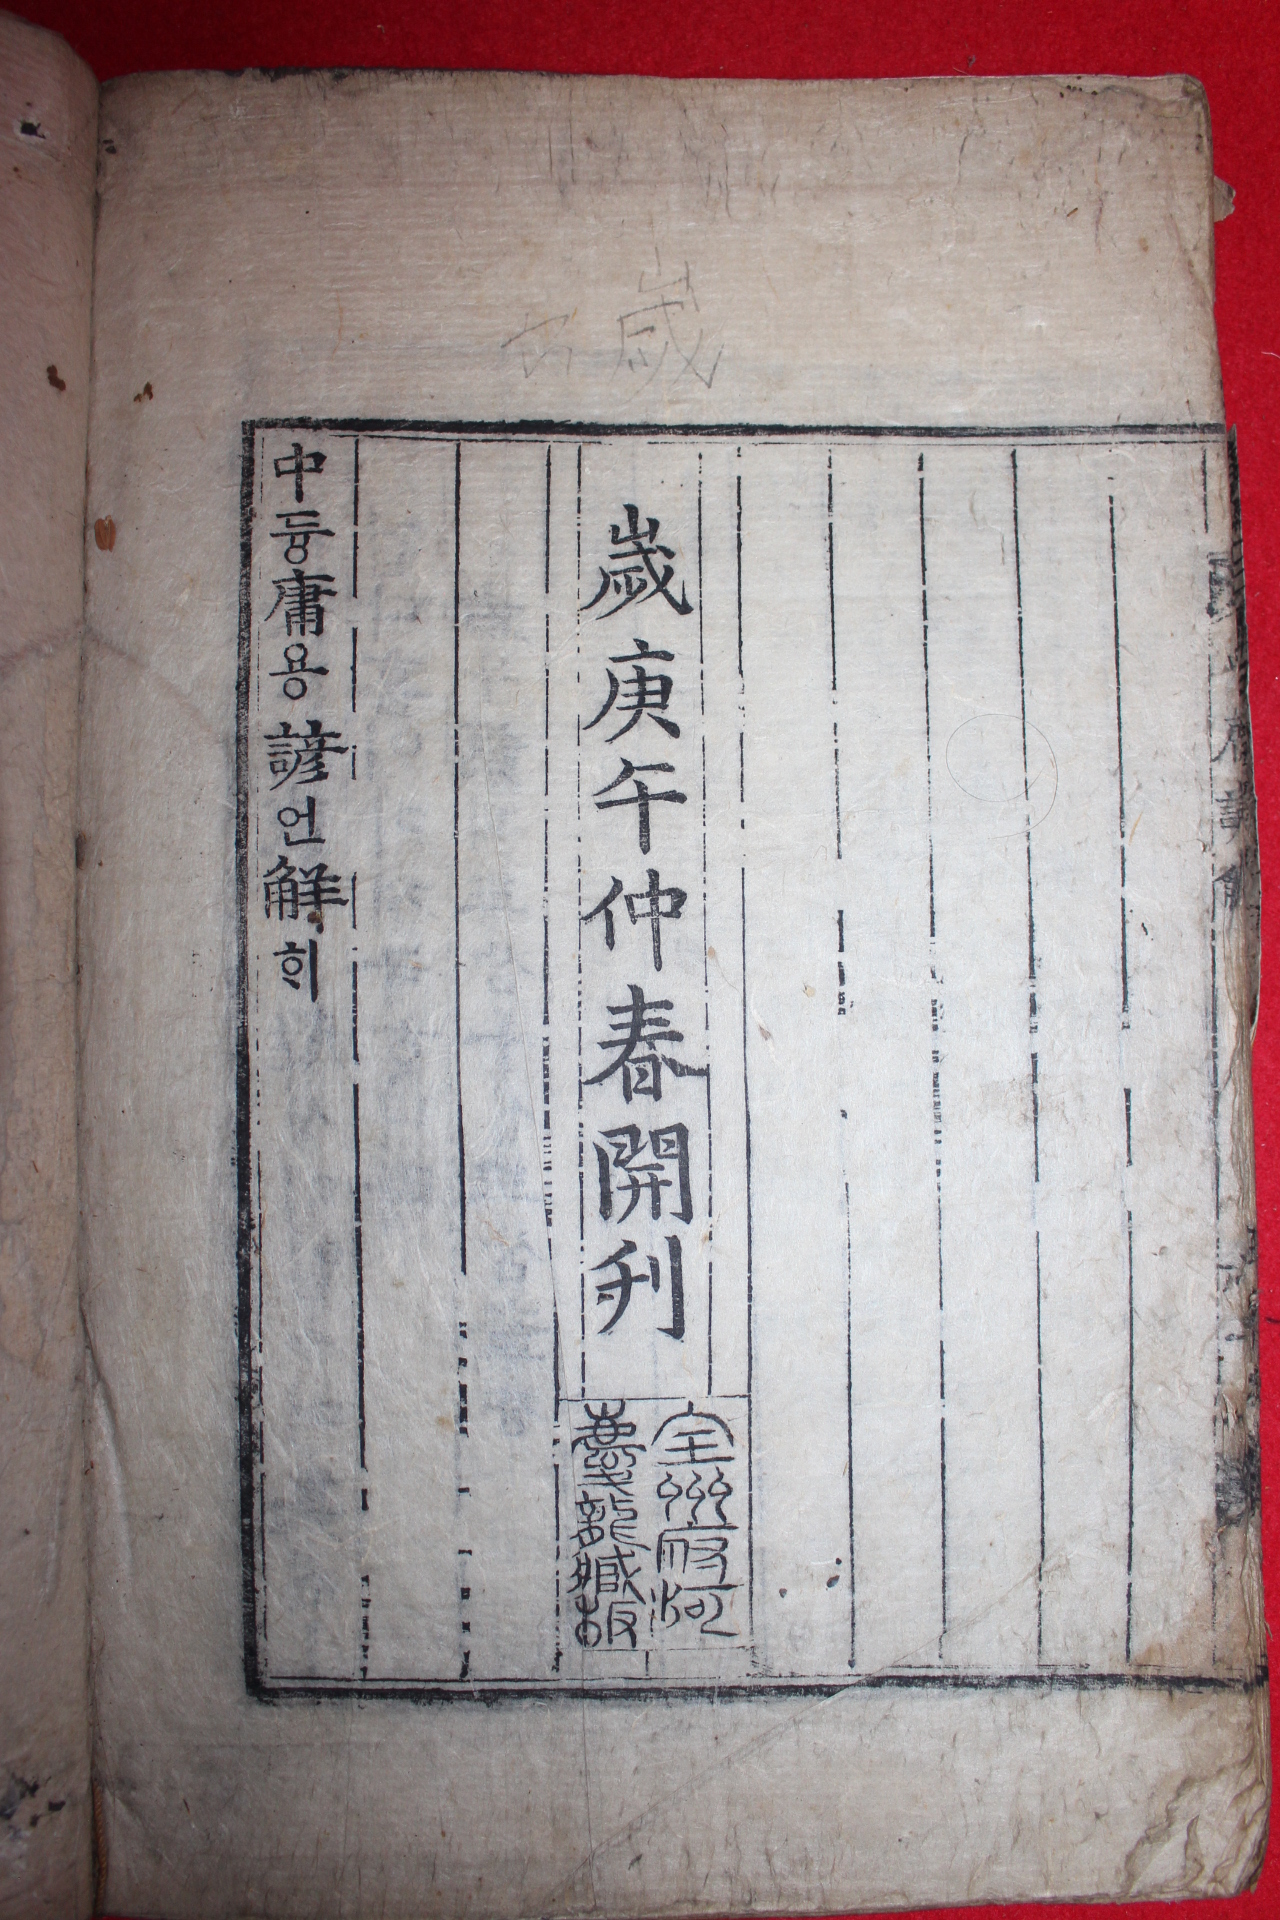 歲
歲庚午仲春開刋
全州府河
慶龍藏板
中듕庸용諺언解ᄒᆡ